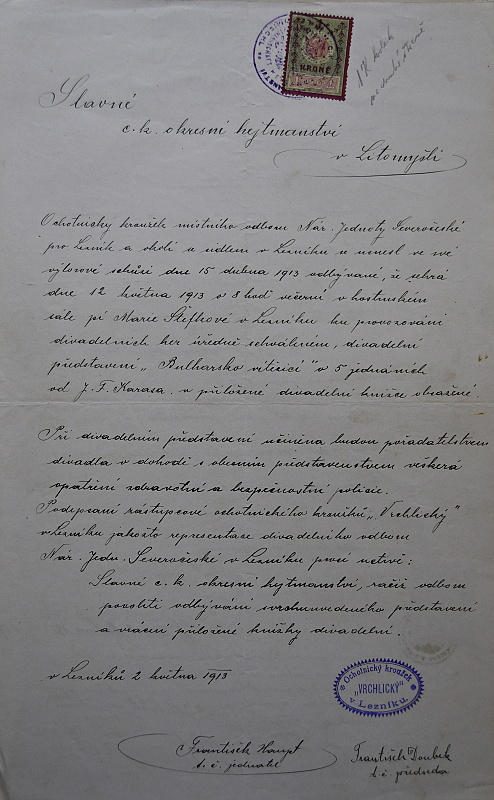 KRONE
Slavné
c. k. okresní hejtmanství
v Litomyšli
Ochotnický kroužek místního odboru Nár. Jednoty Severočeské
pro Lezník a okolí se sídlem v Lezníku se usnesl ve své
výborové schůzi dne 15 dubna 1913 odbývané, že sehrá
dne 12 května 1913 o 8 hod večerní v hostinském
sále pí Marie Štefkové v Lezníku ku provozování
divadelních her úředně schváleném, divadelní
představení „Bulharsko vítězící" v 5 jednáních
od J. F. Karasa v přiložené divadelní knížce obsažené.
Při divadelním představení učiněna budou pořadatelstvem
divadla v dohodě s obecním představenstvem veškerá
opatření zdravotní a bezpečnostní policie.
Podepsaní zástupcové ochotnického kroužku „Vrchlický"
v Lezníku jakožto representace divadelního odboru
Nár. Jedn. Severočeské v Lezníku prosí uctivě:
Slavné c. k. okresní hejtmanství, račiž odboru
povoliti odbývání svrchuuvedeného představení
a vrácení přiložené knížky divadelní.
v Lezníku 2 května 1913
Ochotnický kroužek
„VRCHLICKÝ"
v Lezníku.
František Haupt
t. č. jednatel
František Doubek
t. č. předseda